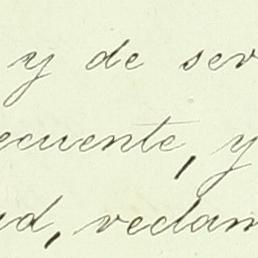 y de ser
ecuente, y
ud, reclam